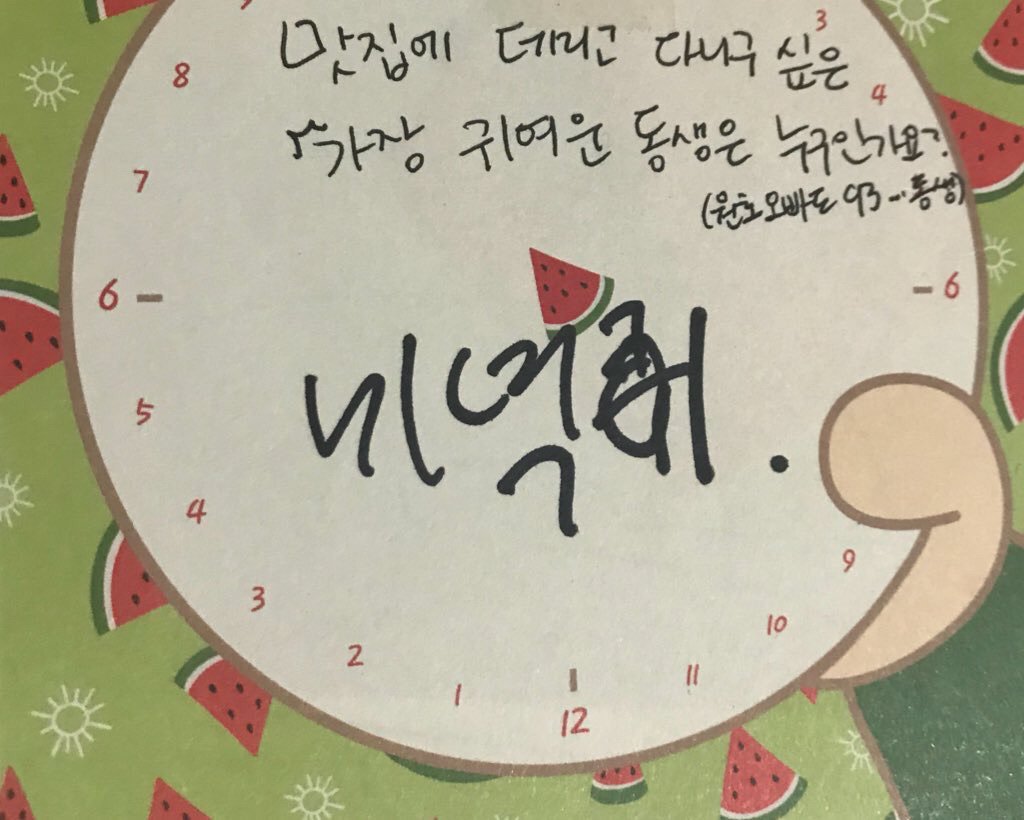 3
맛집에 데리고 다니구 싶은
8
4
가장 귀여운 동생은 누구인가요?
7
(원호오빠도 93...동생)
6
6
5
4
9
3
10
2
11
1
12